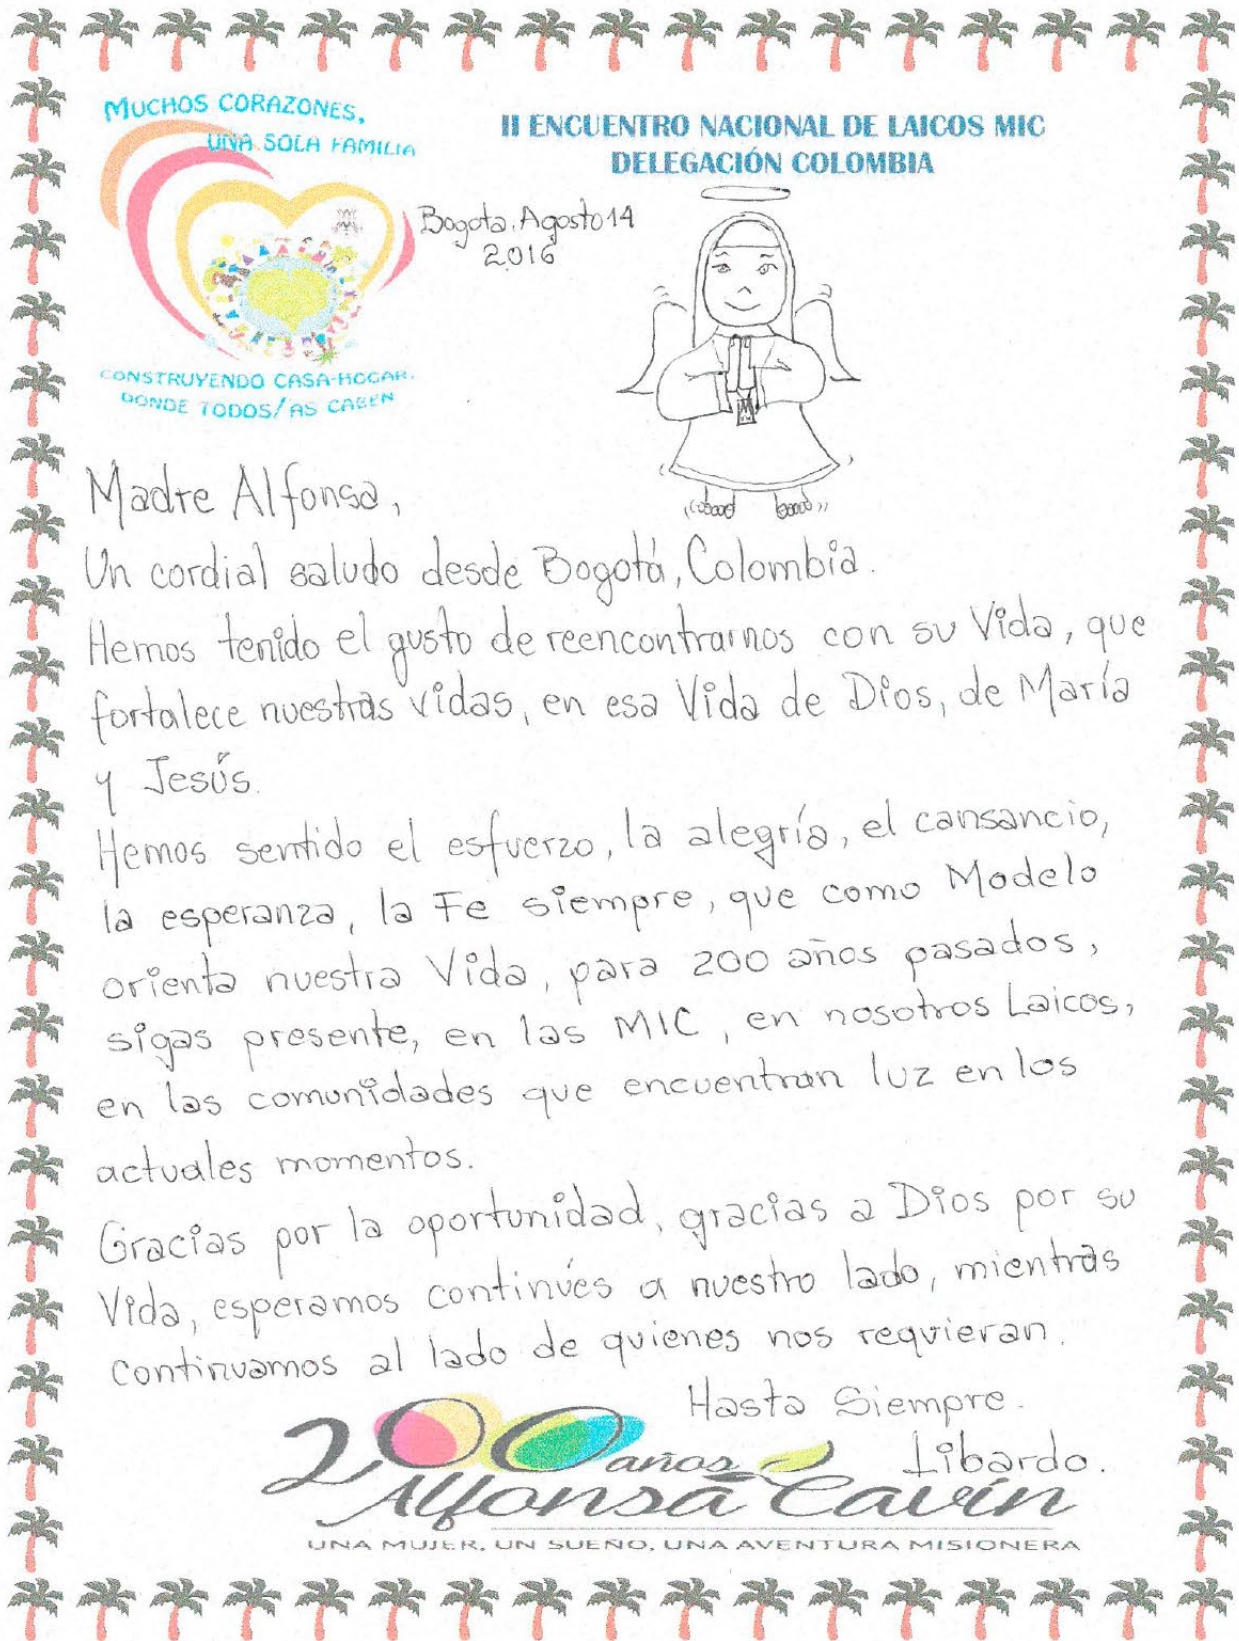 MUCHOS CORAZONES,
UNA SOLA FAMILIA
II ENCUENTRO NACIONAL DE LAICOS MIC
DELEGACIÓN COLOMBIA
Bogota, Agosto 14
2016
CONSTRUYENDO CASA-HOGAR,
DONDE TODOS/AS CABEN
Madre Alfonsa,
Un cordial saludo desde Bogotá, Colombia.
Hemos tenido el gusto de reencontrarnos con su Vida, que
fortalece nuestras vidas, en esa Vida de Dios, de María
y Jesús.
Hemos sentido el esfuerzo, la alegría, el cansancio,
la esperanza, la Fe siempre, que como Modelo
orienta nuestra Vida, para 200 años pasados,
sigas presente, en las MIC, en nosotros Laicos,
en las comunidades que encuentran luz en los
actuales momentos.
Gracias por la oportunidad, gracias a Dios por su
Vida, esperamos continúes a nuestro lado, mientras
continuamos al lado de quienes nos requieran.
Hasta Siempre.
Libardo.
200 años
Alfonsa Cavín
UNA MUJER, UN SUEÑO, UNA AVENTURA MISIONERA